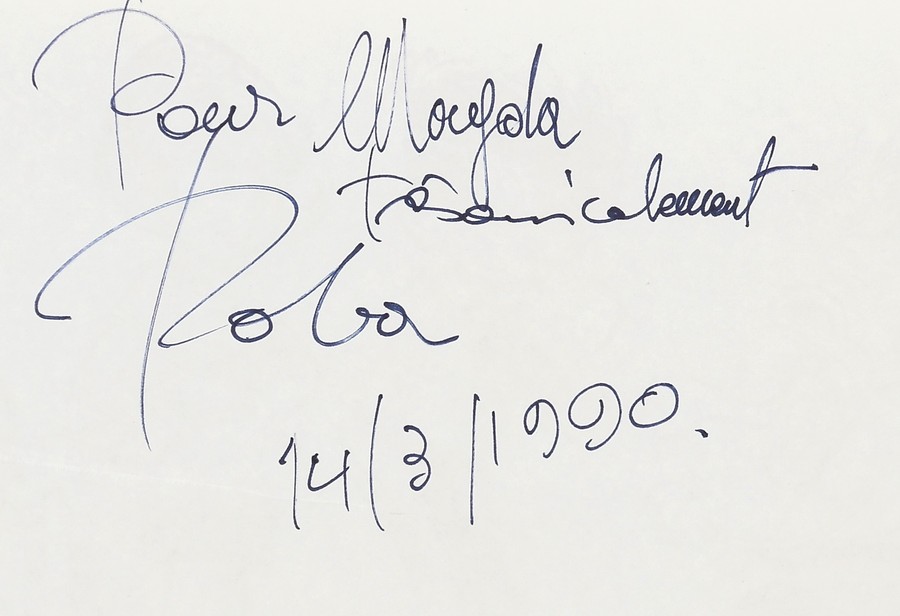 Pour Magda
très amicalement
Roba
14/3/1990.